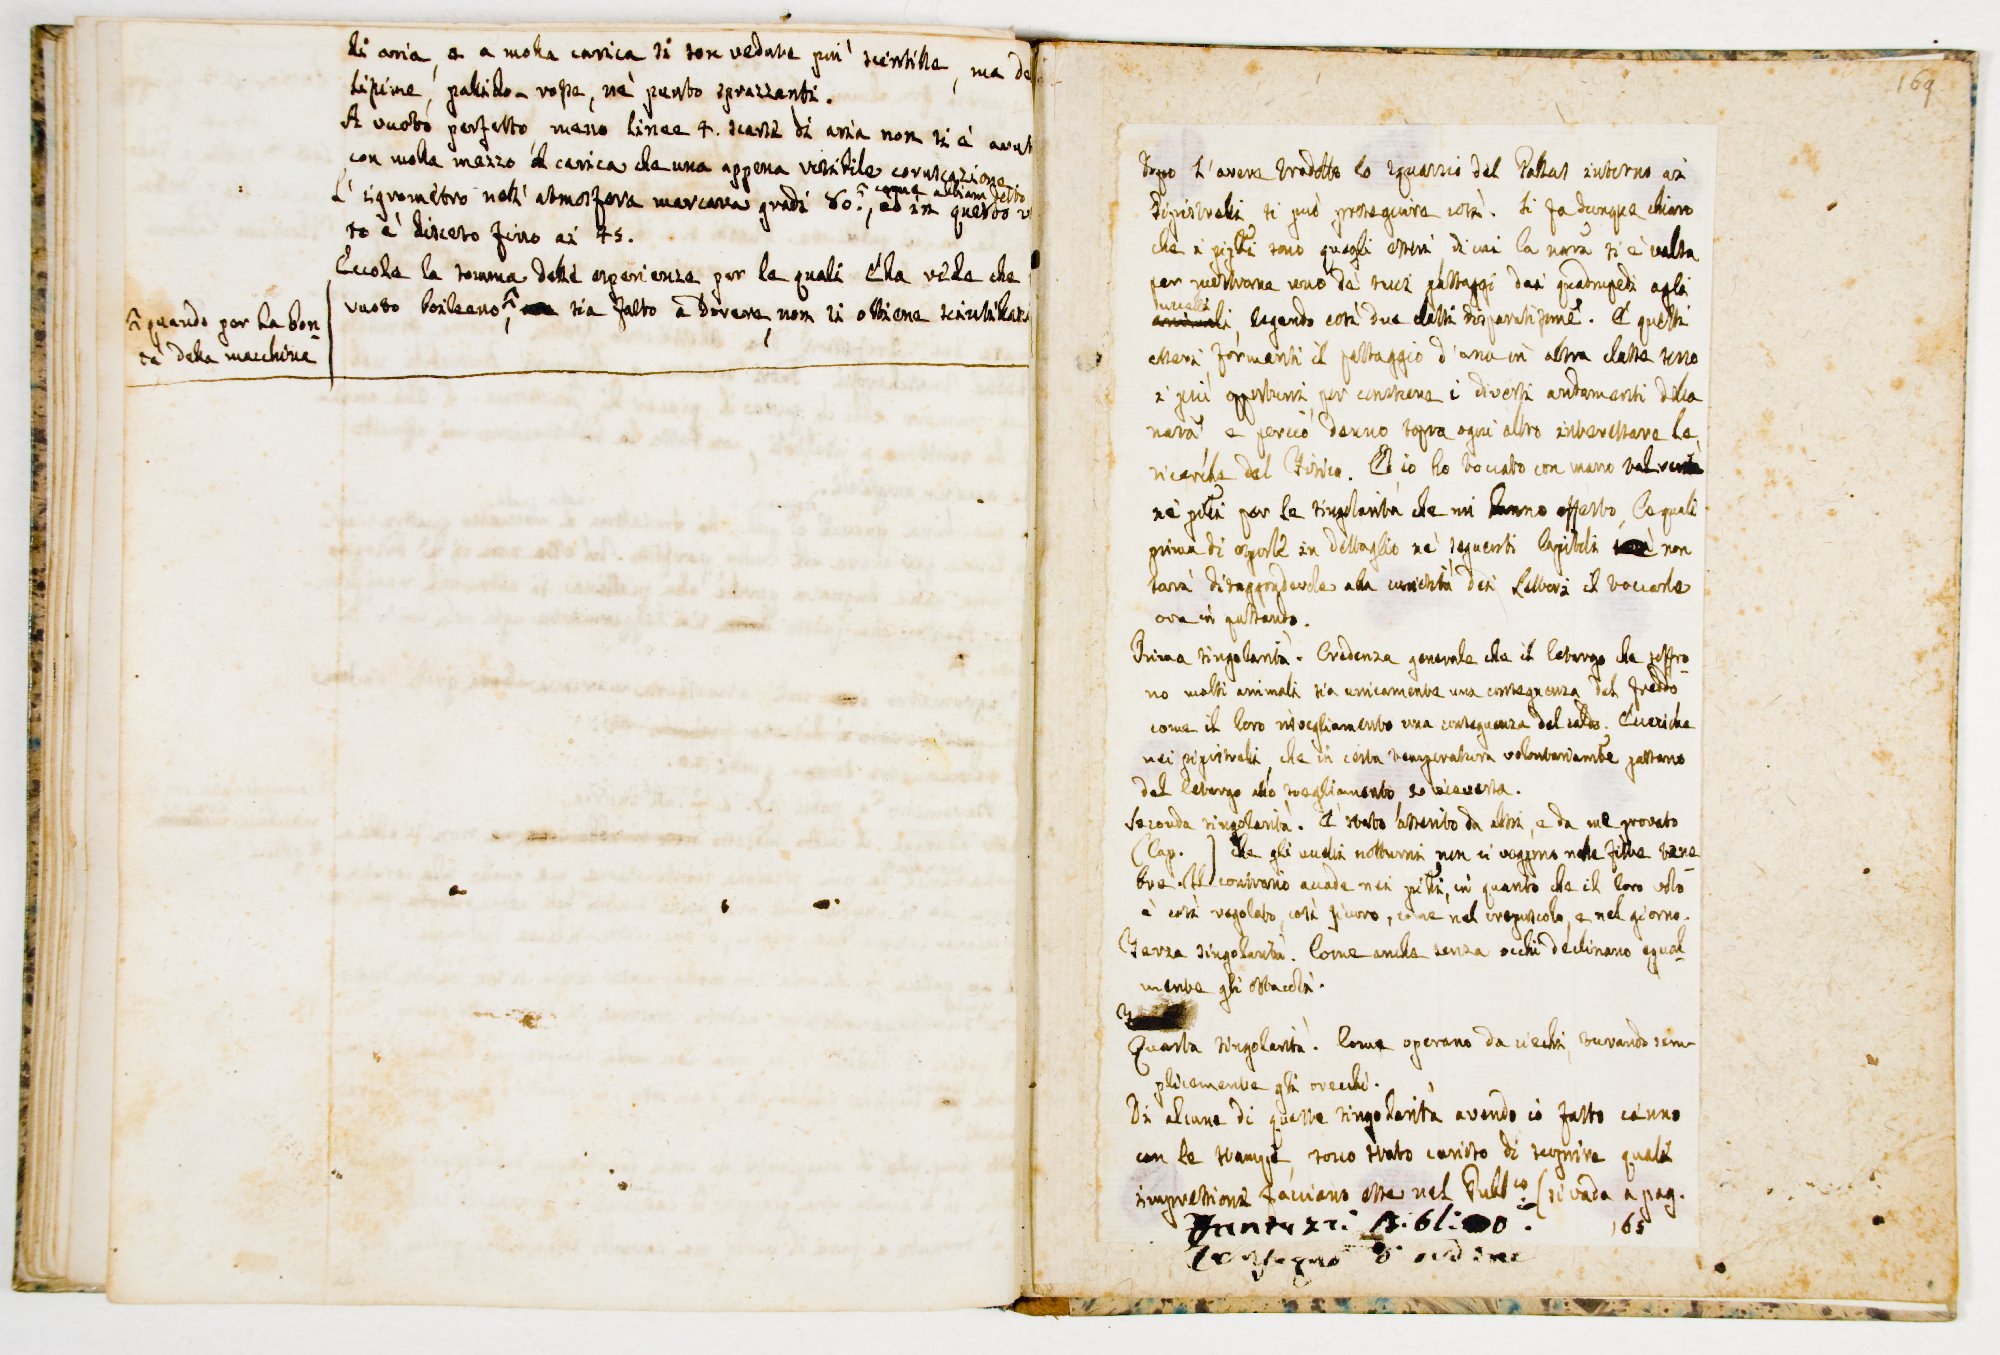 di aria, e a molta carica si son vedute più scintille, ma de
bipine, pallido-rosse, nè punto sprazzanti.
A vuoto perfetto meno linee 4. scarse di aria non si è avut
con molta mezzo di carica che una appena visibile coruscazione
come abbiam detto
L'igrometro nell'atmosfera marcava gradi 80., ed in questo v
to è disceso fino ai 45.
Eccole la somma delle esperienze per le quali Ella vede che
vuoto boileano, sia fatto a dovere, non si ottiene scintillaz
quando per la bon-
tà della macchina
169
Dopo d'avere tradotto lo squarcio del Pallas intorno ai
Pipistrelli si può proseguire così. Si fa dunque chiaro
che i pipistli sono quegli esseri di cui la natura si è valsa
per mettere uno de' suoi passaggi dai quadrupedi agli
uccelli
animali, legando così due classi disparatissime. E questi
esseri formanti il passaggio d'una in altra classe sono
i più opportuni per conoscere i diversi andamenti della
natura, e perciò denno sopra ogni altro interessare le
ricerche del Fisico. Ed io ho toccato con mano tal verità
nè pitli per le singolarità che mi hanno offerto, le quali
prima di esporle in dettaglio ne' seguenti Capitoli non
sarà disaggradevole alla curiosità dei Lettori il toccarle
ora in passando.
Prima singolarità. Credenza generale che il letargo che soffro-
no molti animali sia unicamente una conseguenza del freddo
come il loro risvegliamento una conseguenza del caldo.
nei pipistrelli, che in certa temperatura volontariamte passano
dal letargo allo svegliamento, e viceversa.
Seconda singolarità. È stato asserito da altri, e da me provato
(Cap. ) che gli uccelli notturni non ci veggono nelle fitte tene-
bre. Il contrario accade nei pitli, in quanto che il loro volo
è così regolato, così sicuro, come nel crepuscolo, e nel giorno.
Terza singolarità. Come anche senza occhi declinano egual-
mente gli ostacoli.
Quarta singolarità. Come operano da ciechi, turando sem-
plicemente gli orecchi.
Di alcune di queste singolarità avendo io fatto cenno
con le stampe, sono stato curioso di scoprire quali
impressioni facciano esse nel Pubbco. (si vada a pag.
165